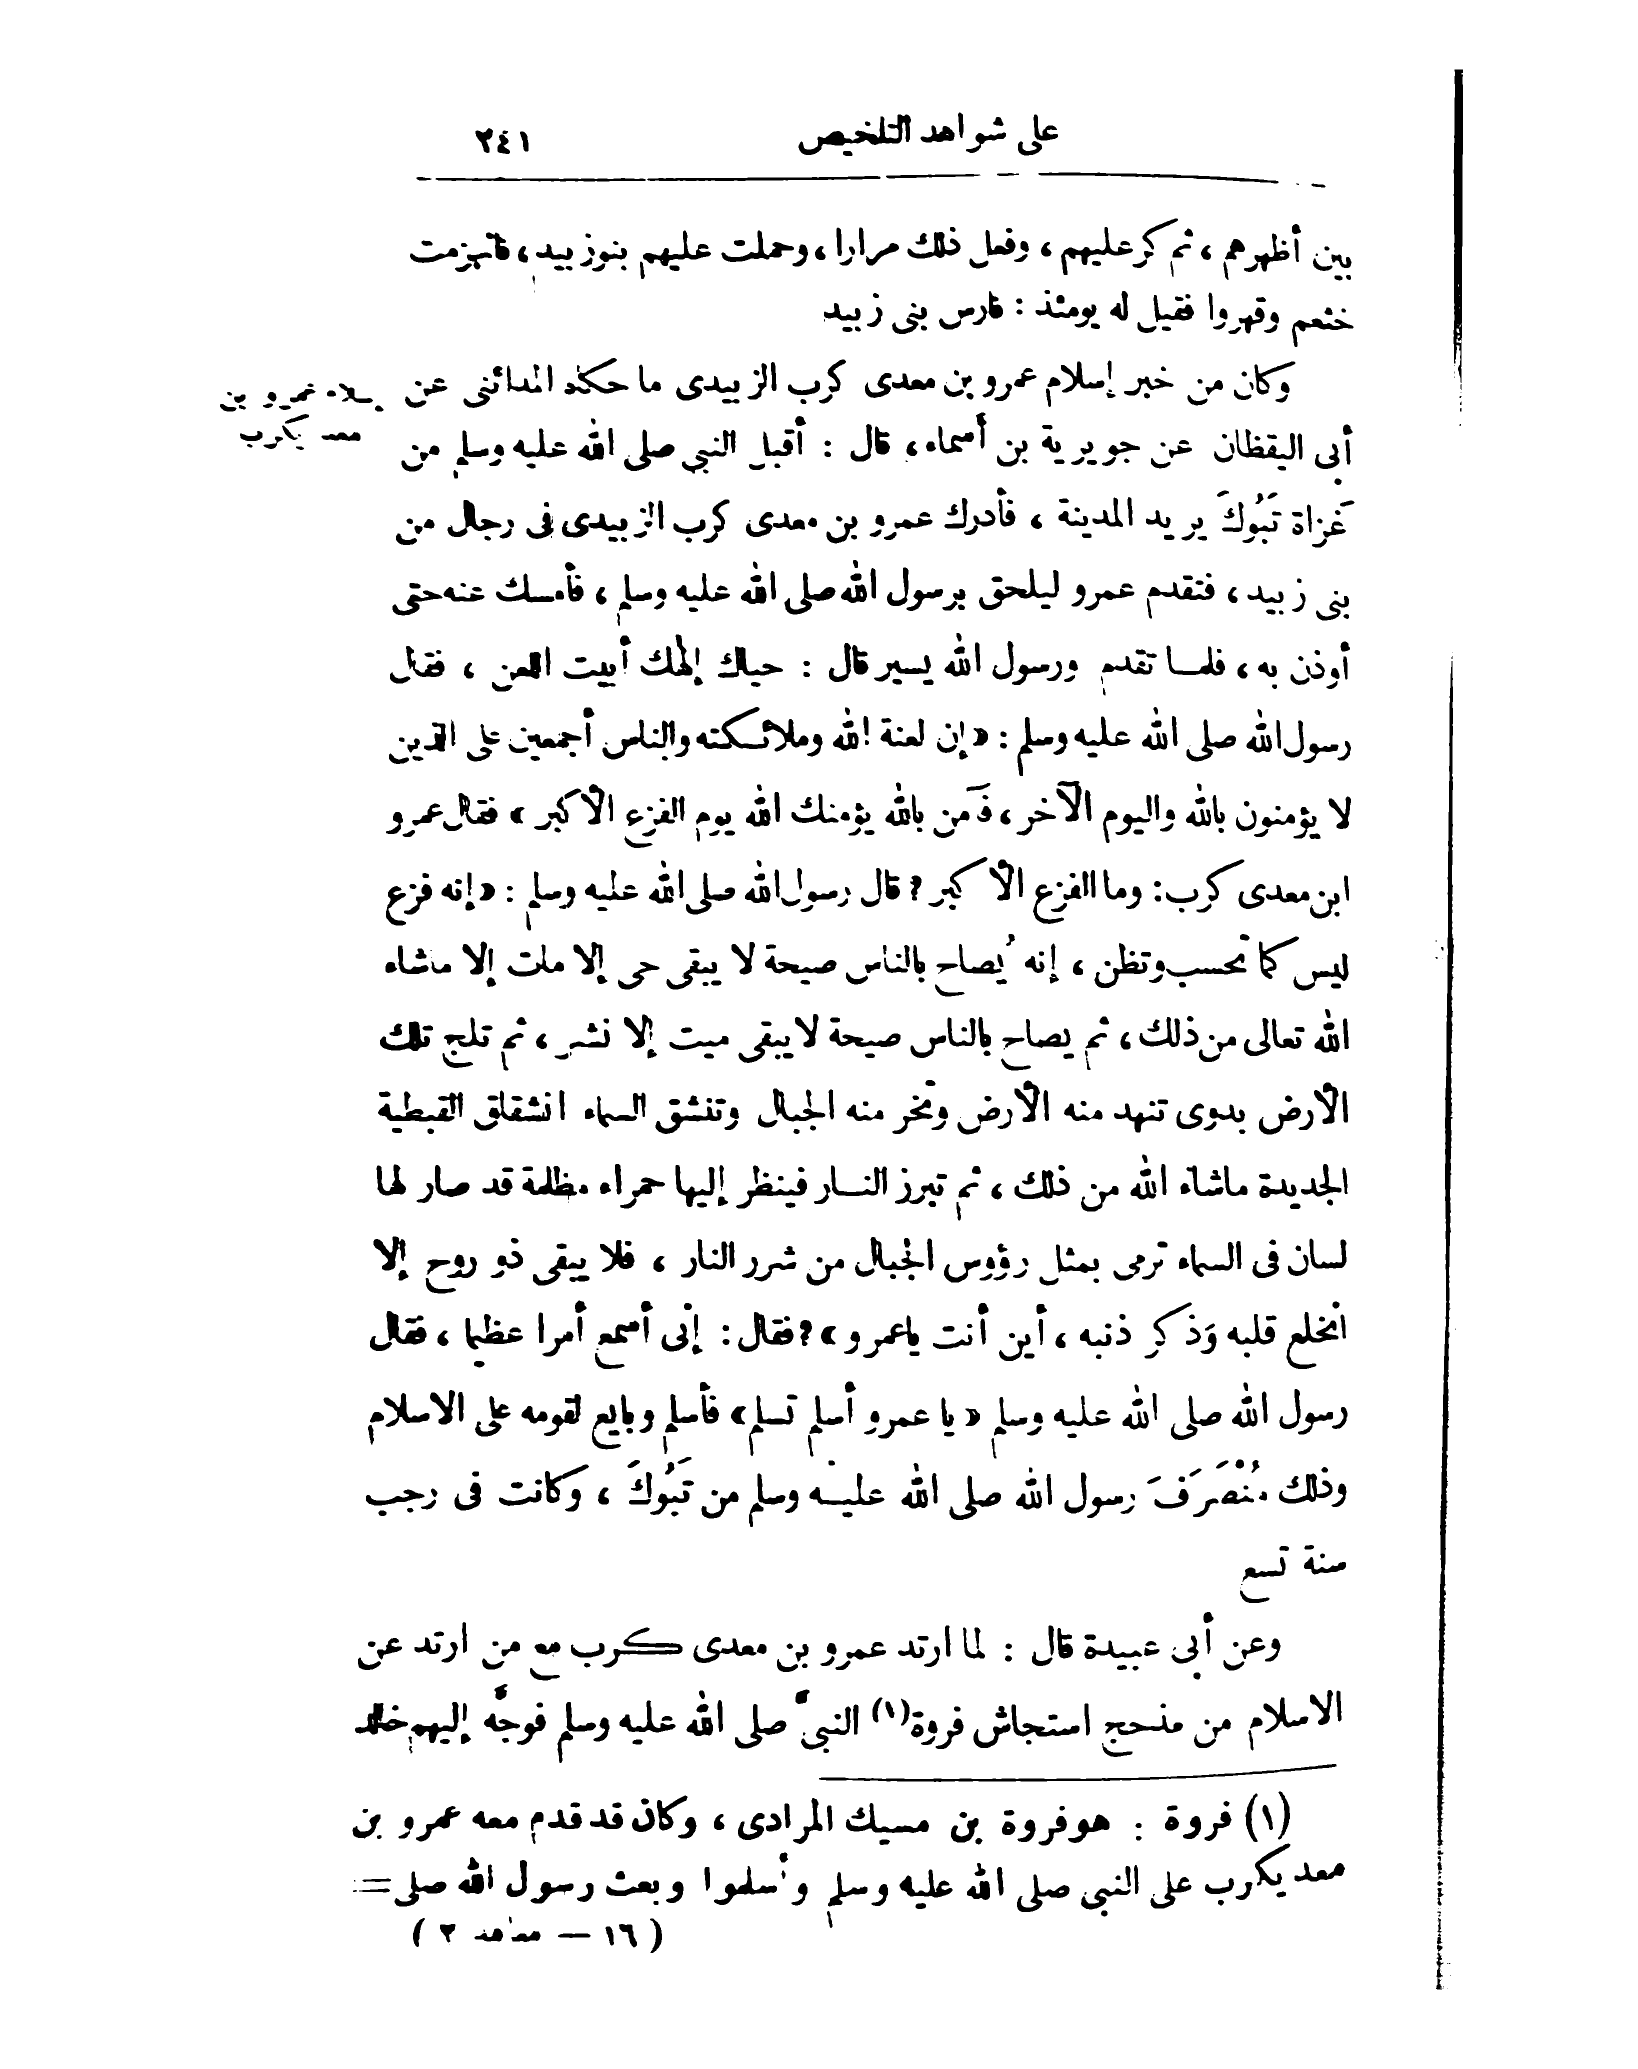 على شواهد التلخيص ٢٤١
بين أظهرهم ، ثم كر عليهم ، وفعل ذلك مرارا ، وحملت عليهم بنو زبيد ، فانهزمت
خثعم وقهروا فقيل له يومئذ : فارس بنى زبيد
وكان من خبر إسلام عمرو بن معدى كرب الزبيدى ما حكاه المدائنى عن
إسلام عمرو بن
معد يكرب
أبى اليقظان عن جويرية بن أسماء ، قال : أقبل النبى صلى الله عليه وسلم من
غَزاة تَبُوكَ يريد المدينة ، فأدرك عمرو بن معدى كرب الزبيدى فى رجال من
بنى زبيد ، فتقدم عمرو ليلحق برسول الله صلى الله عليه وسلم ، فأمسك عنه حتى
أوذن به ، فلما تقدم ورسول الله يسير قال : حياك إلهك أبيت اللعن ، فقال
رسول الله صلى الله عليه وسلم : « إن لعنة الله وملائكته والناس أجمعين على الذين
لا يؤمنون بالله واليوم الآخر ، فآمن بالله يؤمنك الله يوم الفزع الأكبر » فقال عمرو
ابن معدى كرب : وما الفزع الأكبر ؟ قال رسول الله صلى الله عليه وسلم : « إنه فزع
ليس كما تحسب وتظن ، إنه يُصاح بالناس صيحة لا يبقى حى إلا مات إلا ما شاء
الله تعالى من ذلك ، ثم يصاح بالناس صيحة لا يبقى ميت إلا نشر ، ثم تلج تلك
الأرض بدوى تنهد منه الأرض وتخر منه الجبال وتنشق السماء انشقاق القبطية
الجديدة ما شاء الله من ذلك ، ثم تبرز النار فينظر إليها حمراء مظلمة قد صار لها
لسان فى السماء ترمى بمثل رؤوس الجبال من شرر النار ، فلا يبقى ذو روح إلا
انخلع قلبه وَذكر ذنبه ، أين أنت يا عمرو » ؟ فقال : إنى أسمع أمرا عظيما ، فقال
رسول الله صلى الله عليه وسلم « يا عمرو أسلم تسلم » فأسلم وبايع لقومه على الاسلام
وذلك مُنْصَرَفَ رسول الله صلى الله عليه وسلم من تَبُوكَ ، وكانت فى رجب
سنة تسع
وعن أبى عبيدة قال : لما ارتد عمرو بن معدى كرب مع من ارتد عن
الاسلام من مذحج استجاش فروة(١) النبىَّ صلى الله عليه وسلم فوجَّه إليهم خالد
(١) فروة : هو فروة بن مسيك المرادى ، وكان قد قدم معه عمرو بن
معد يكرب على النبى صلى الله عليه وسلم وأسلموا وبعث رسول الله صلى =
( ١٦ — معاهد ٢ )